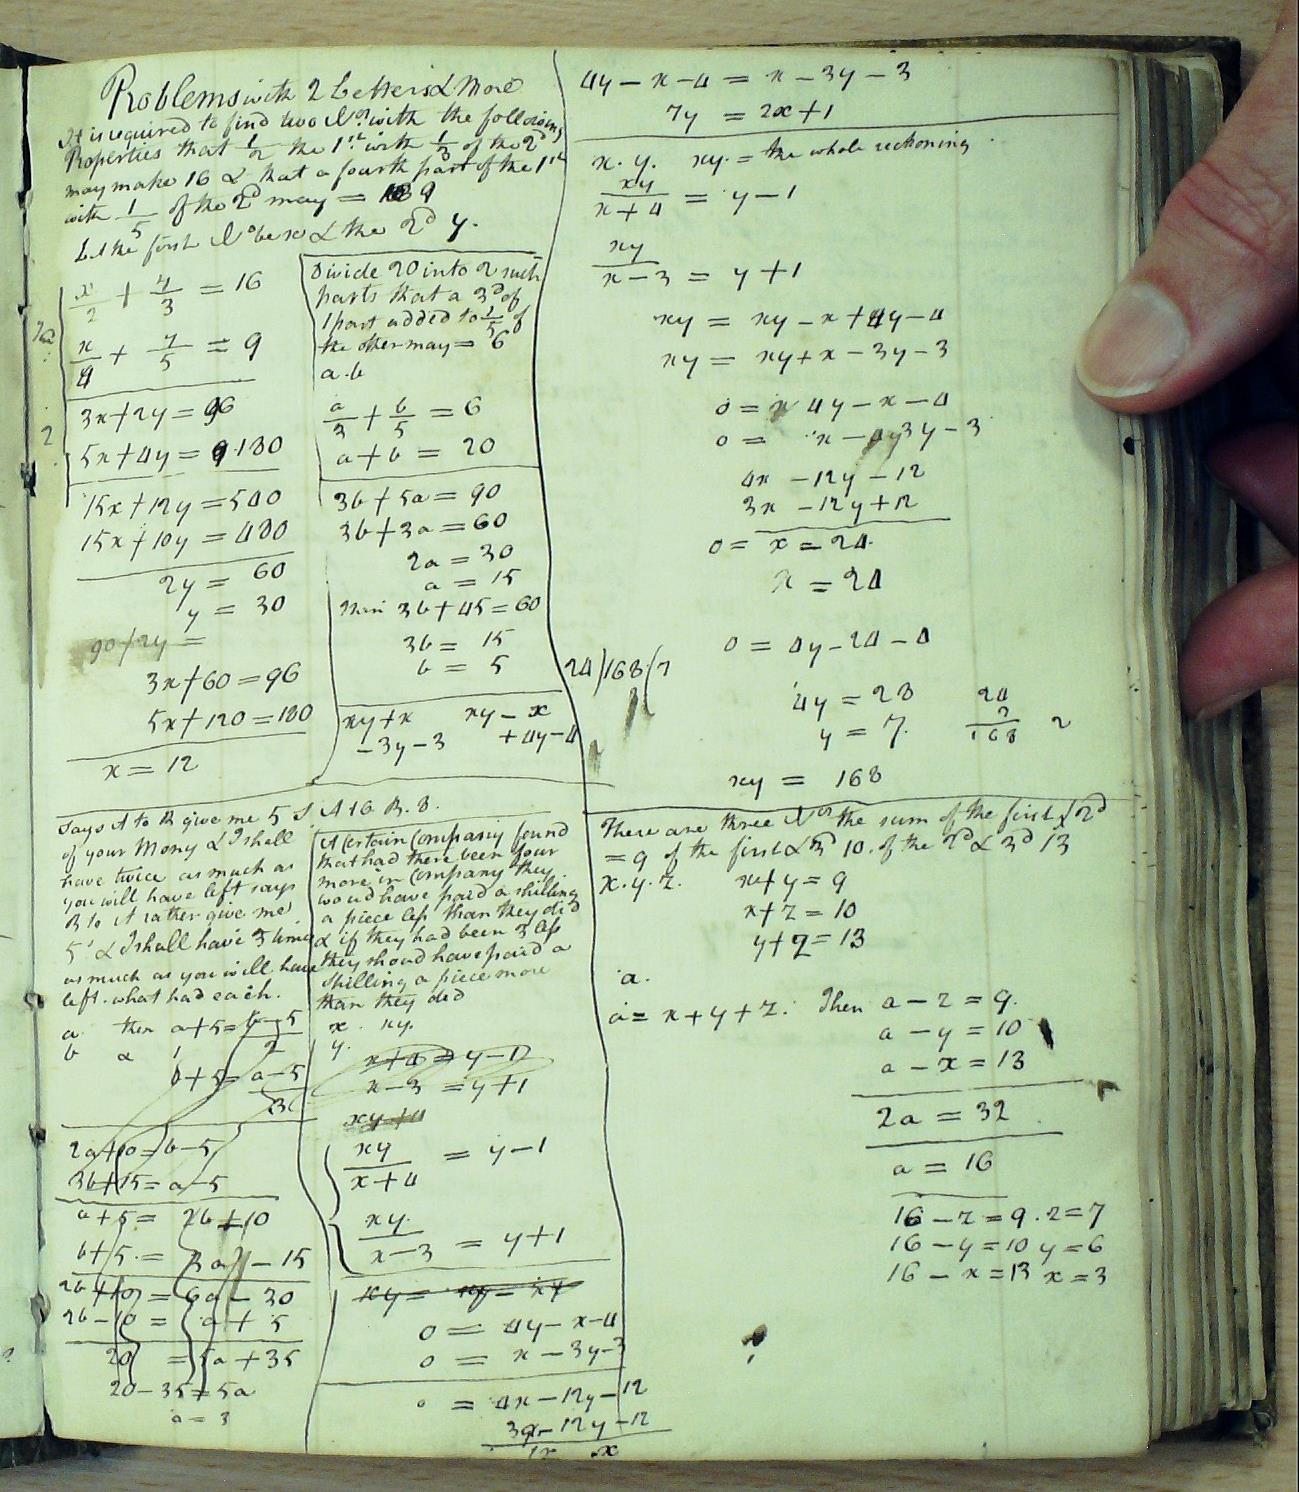 Problems with 2 Letters & More
It is required to find two Nos. with the following
Properties that 1/2 the 1st with 1/3 of the 2d
may make 16 & that a fourth part of the 1st
with 1/5 of the 2d may = 9
Let the first No be x & the 2d y.
x/2 + y/3 = 16
x/4 + y/5 = 9
3x+2y = 96
5x+4y = 180
15x+12y = 540
15x+10y = 480
2y = 60
y = 30
90+2y =
3x+60 = 96
5x+120 = 180
x = 12
Divide 20 into 2 such
parts that a 3d of
1 part added to 1/5 of
the other may = 6
a. b
a/3 + b/5 = 6
a+b = 20
3b+5a = 90
3b+3a = 60
2a = 30
a = 15
then 3b+45 = 60
3b = 15
b = 5
xy+x xy-x
-3y-3 +4y-4
Says A to B give me 5 s
of your Mony & I shall
have twice as much as
you will have left says
B to A rather give me
5 & I shall have 3 times
as much as you will have
left. what had each.
a then a+5 = b-5/2
b & b+5 = a-5/3
2a+10 = b-5
3b+15 = a-5
a+5 = 2b+10
b+5 = 3a - 15
2b+10 = 6a-30
2b-10 = a+5
20 = 5a+35
20-35 = 5a
a = 3
A Certain Company found
that had there been four
more in Company they
would have paid a shilling
a piece less than they did
& if they had been 3 less
they should have paid a
shilling a piece more
than they did
x. xy.
y.
x+4 = y-1
x-3 = y+1
xy+4
xy/x+4 = y-1
xy/x-3 = y+1
0 = 4y-x-4
0 = x-3y-3
0 = 4x-12y-12
3x-12y-12
4y-x-4 = x-3y-3
7y = 2x+1
x. y. xy. = the whole reckoning
xy/x+4 = y-1
xy/x-3 = y+1
xy = xy-x+4y-4
xy = xy+x-3y-3
0 = 4y-x-4
0 = x-3y-3
4x-12y-12
3x-12y+12
0 = x = 24.
x = 24
0 = 4y-24-4
24)168(7
4y = 28
y = 7.
24
7
168
xy = 168
There are three Nos the sum of the first & 2d
= 9 of the first & 3d 10. of the 2d & 3d 13
x. y. z. x+y = 9
x+z = 10
y+z = 13
a.
a = x+y+z. Then a-z = 9.
a-y = 10
a-x = 13
2a = 32
a = 16
16-z = 9. z = 7
16-y = 10 y = 6
16-x = 13 x = 3